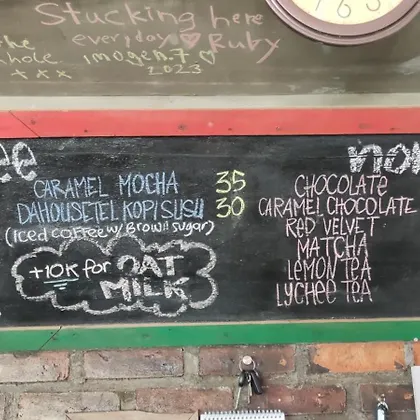 Stucking here
everyday ♡ Ruby
the
whole imogen.7 ♡
xxx 2023
CARAMEL MOCHA 35
DAHOUSETEL KOPI SUSU 30
(iced coffee w/ Brown sugar)
+10K for OAT
MILK
CHOCOLATE
CARAMEL CHOCOLATE
RED VELVET
MATCHA
LEMON TEA
LYCHEE TEA